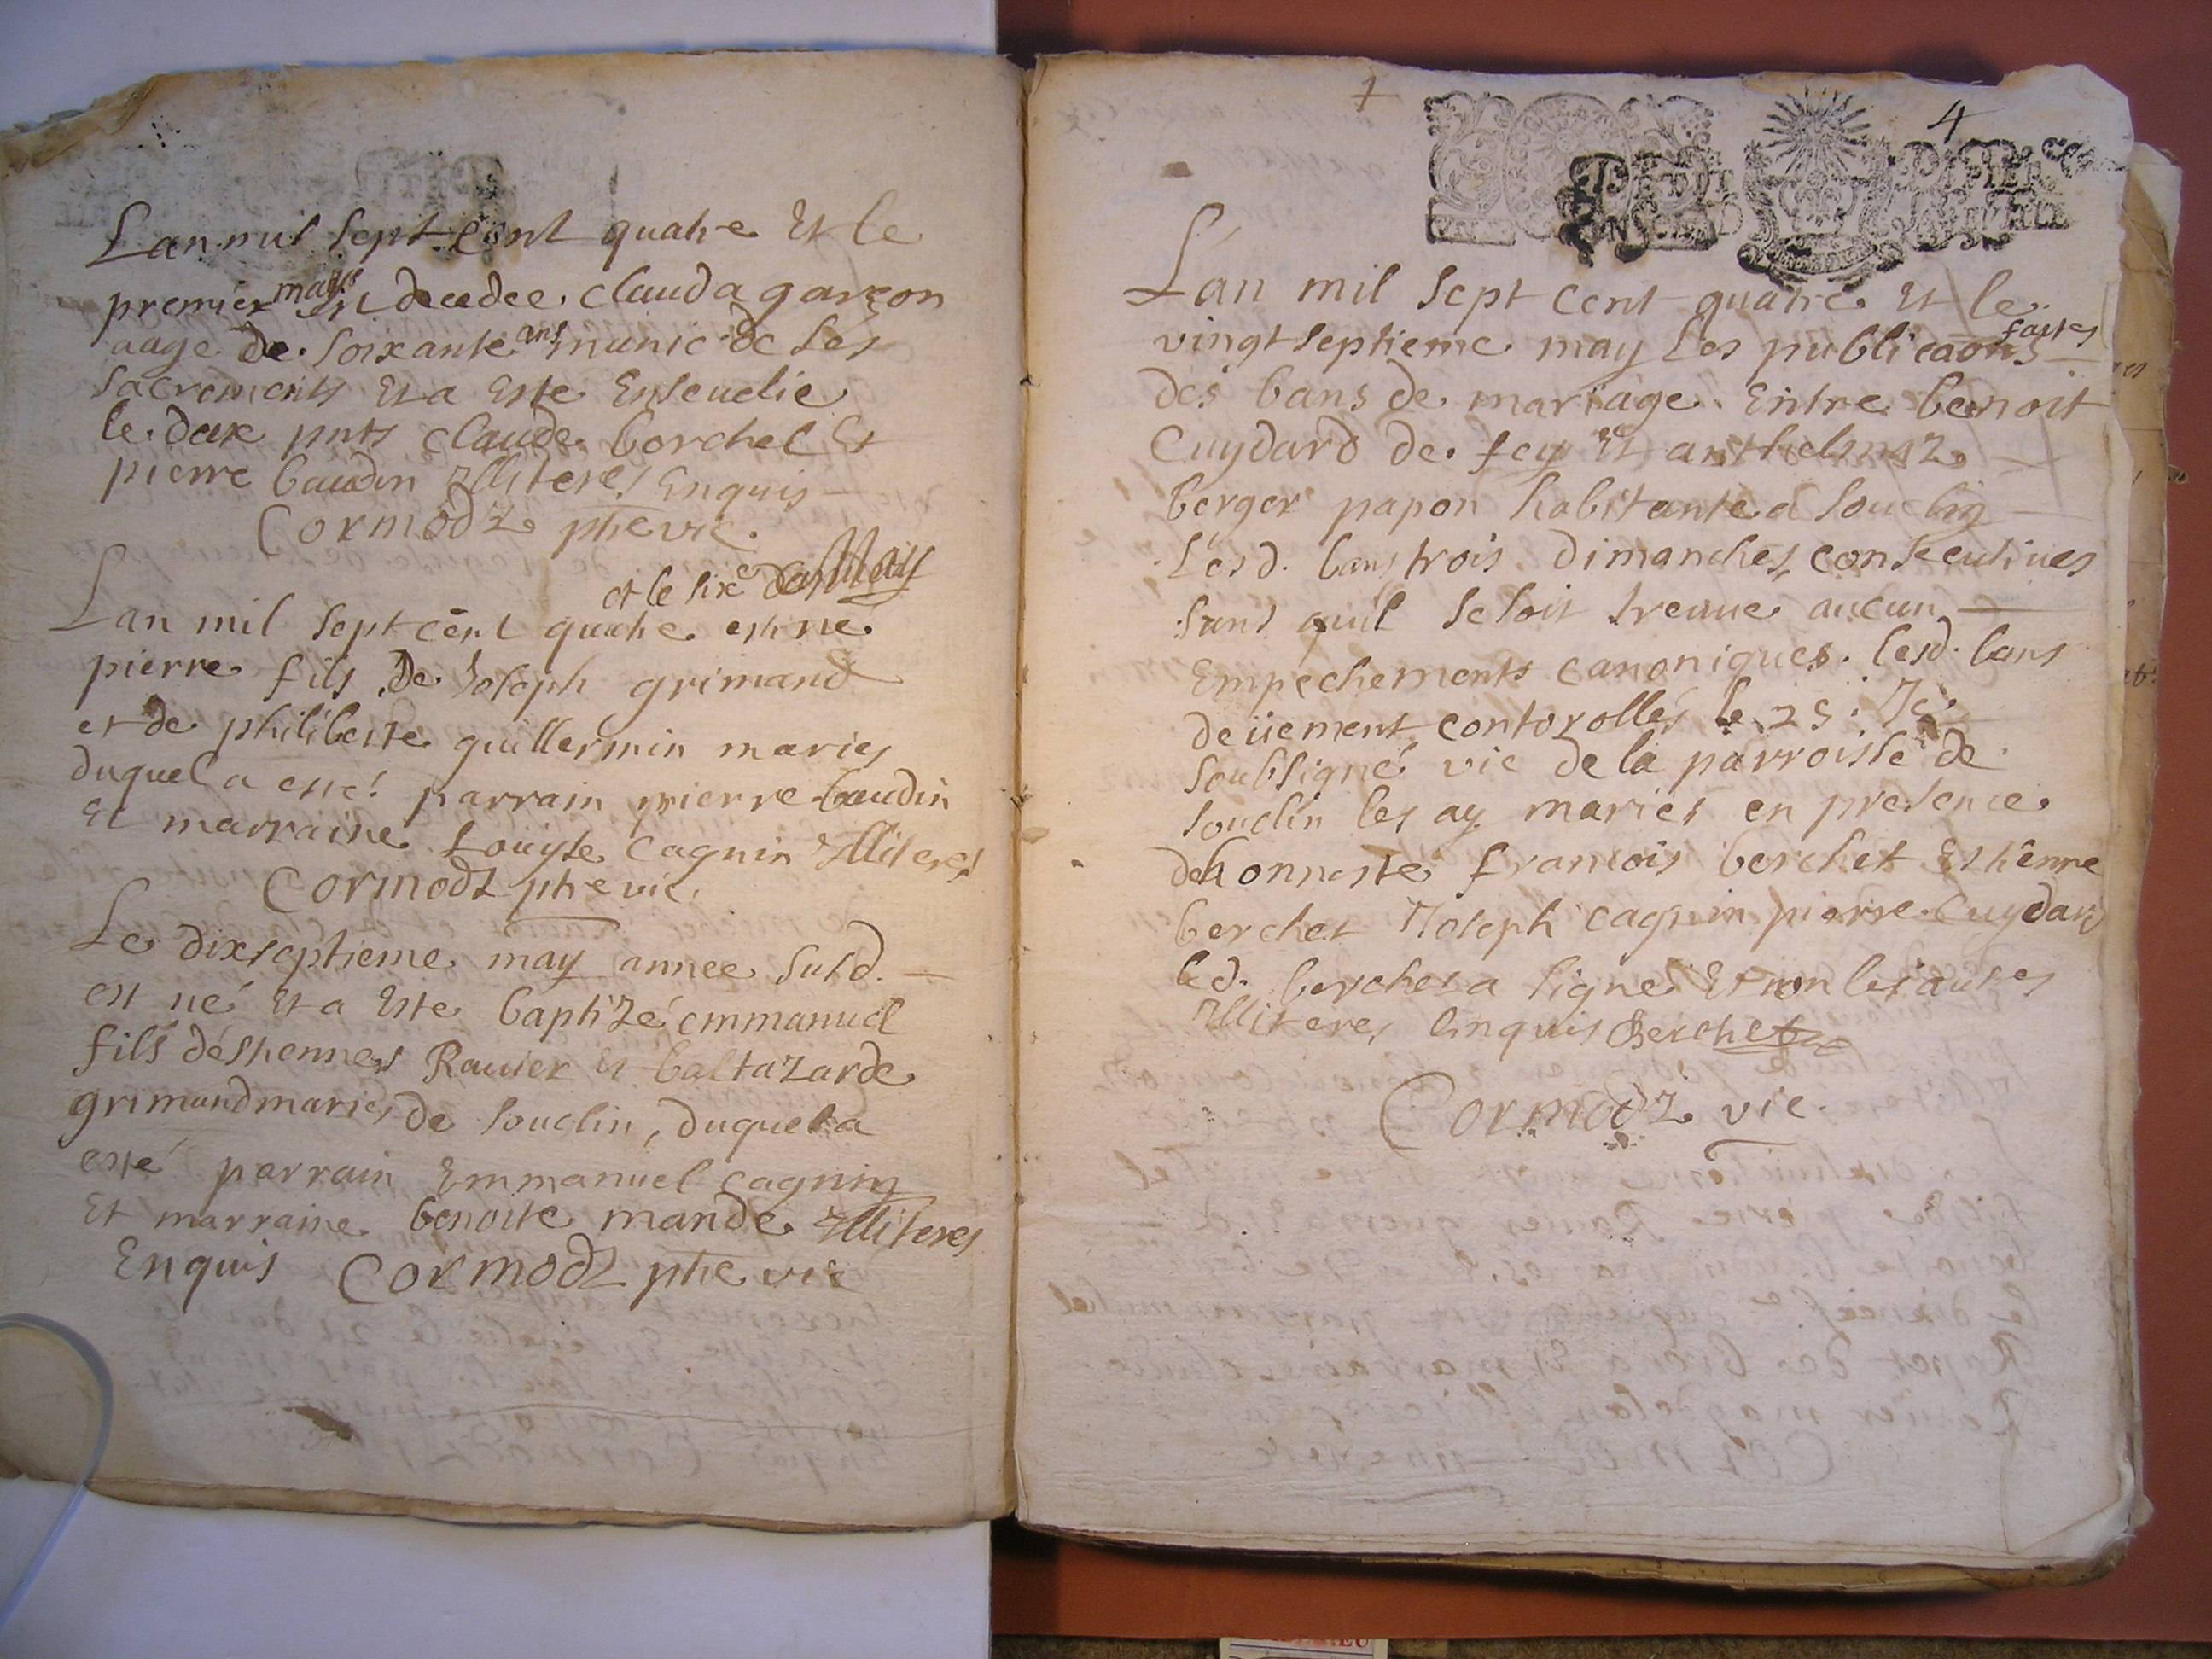 Lan mil sept cent quatre Et le
premier mars est decedee clauda garçon
aage de soixante ans munie de ses
sacrements Et a Este Enseuelie
le deux pnts claude borchel Et
pierre baudin Illiteres Enquis
Cormodz ptre vic.
et le six May
Lan mil sept cent quatre est né
pierre fils de Joseph grimand
et de philiberte guillermin maries
duquel a esté parrain pierre baudin
Et marraine Louyse Cagnin Illiteres
Cormodz ptre vic.
Le dixseptieme may annee susd.
est né Et a Este baptizé emmanuel
fils déstienne Rauier Et baltazarde
grimand maries de souclin, duquel a
esté parrain Emmanuel cagnin
Et marraine benoite mande Illiteres
Enquis Cormodz ptre vic
4
Lan mil sept cent quatre Et le
vingtseptieme may les publicaons faites
des bans de mariage Entre benoit
Cuydard de fey Et anthelmaz
berger papon habitante a souclin
lesd. bans trois dimanches consecutiues
sans quil se soit treuue aucun
Empechements canoniques. lesd. bans
deüement contorolles le 25. Je
soubsigné vic de la parroisse de
souclin les ay maries en presence
dehonneste francois berchet Esthenne
berchet Joseph cagnin pierre Cuydard
led. berchet a signe Et non les autres
Illiteres Enquis Berchet
Cormodz vic.